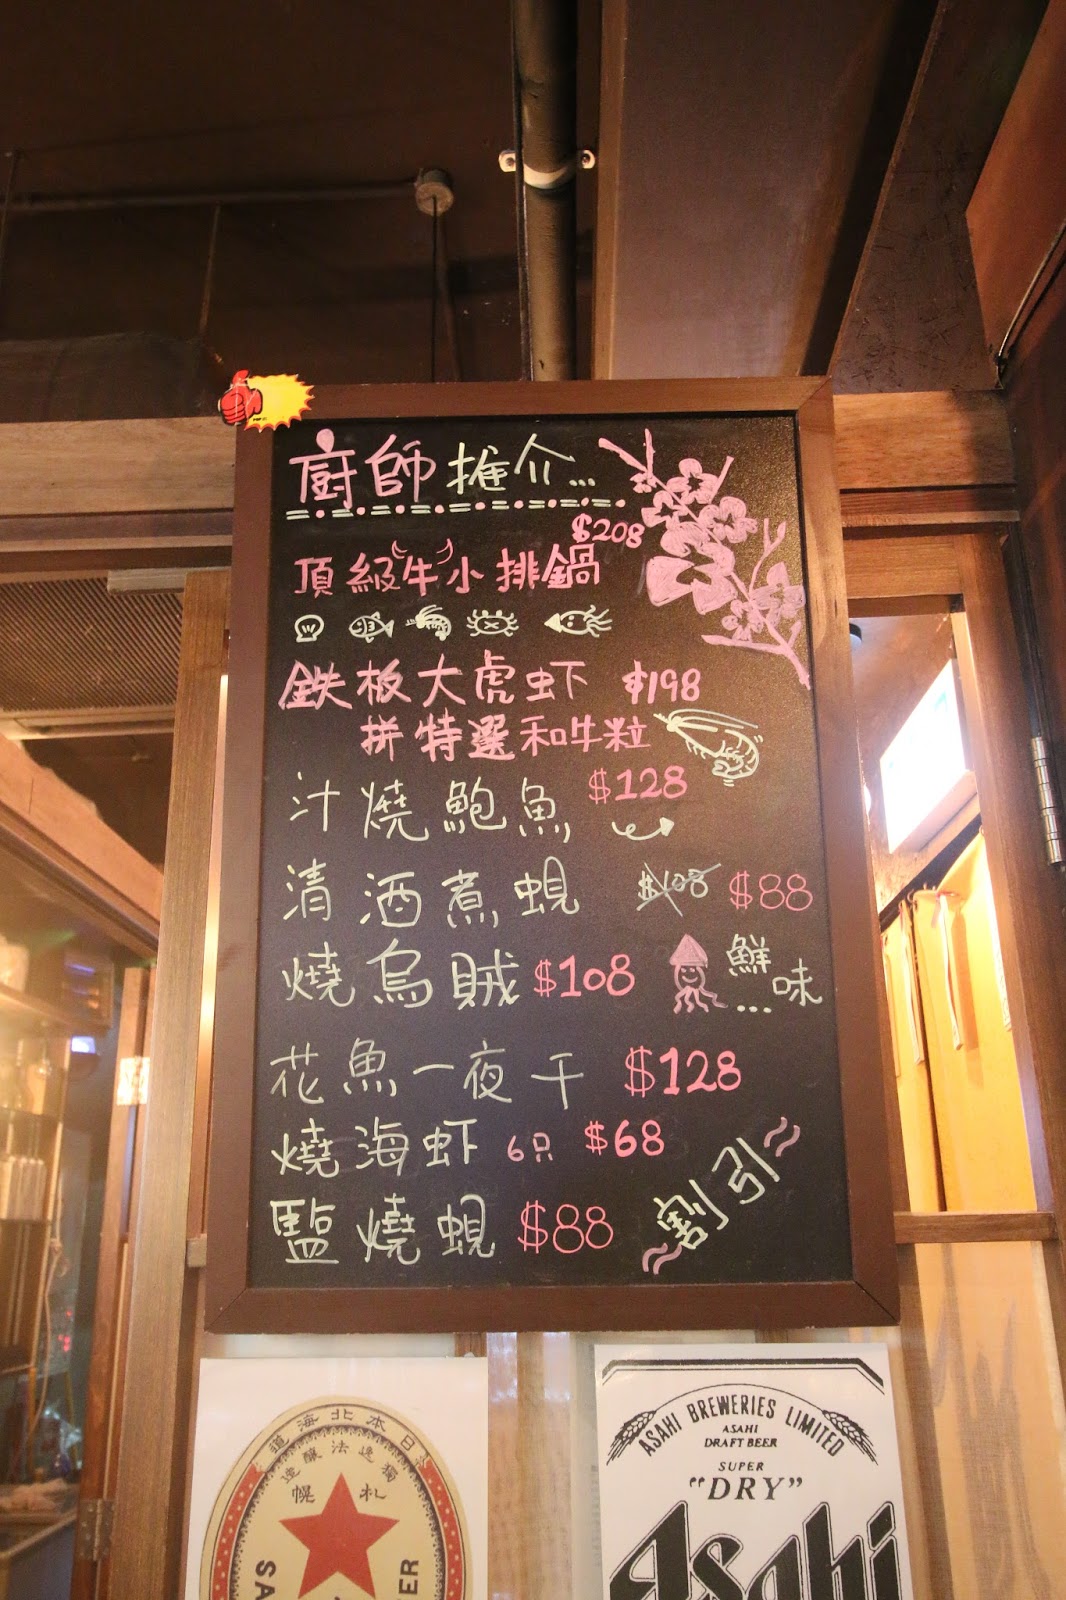 廚師推介...
$208
頂級牛小排鍋
鉄板大虎虾 $198
拼特選和牛粒
汁燒鮑魚 $128
清酒煮蜆 $108 $88
燒烏賊 $108 鮮味...
花魚一夜干 $128
燒海虾 6只 $68
盬燒蜆 $88 割引
道海北本日
造釀法逸獨
幌札
ASAHI BREWERIES LIMITED
ASAHI
DRAFT BEER
SUPER
"DRY"
Asahi